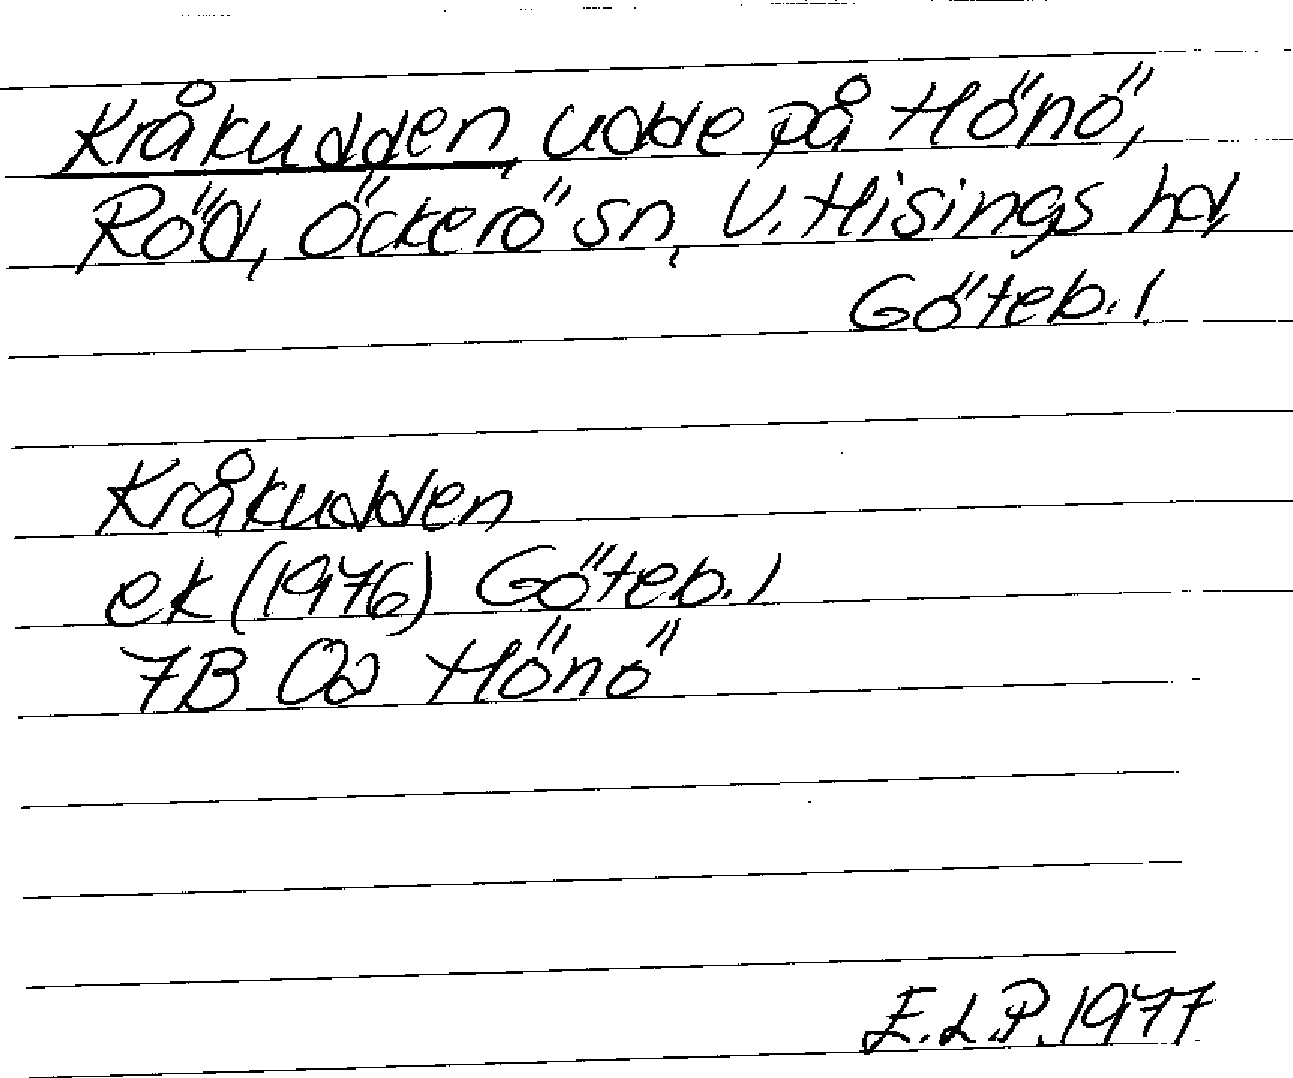 Kråkudden, udde på Hönö,
Röd, Öckerö sn, V. Hisings hd,
Göteb. l.
Kråkudden
ek (1976) Göteb. l
7B 0a Hönö
E.L.P. 1977